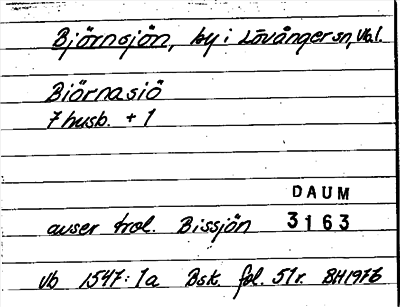 Björnsjön, by i Lövånger sn, Vb.l.
Biörnasiö
7 husb. + 1
DAUM
avser trol. Bissjön 3163
Vb 1547:1a Bsk. fol. 51r. BH1976